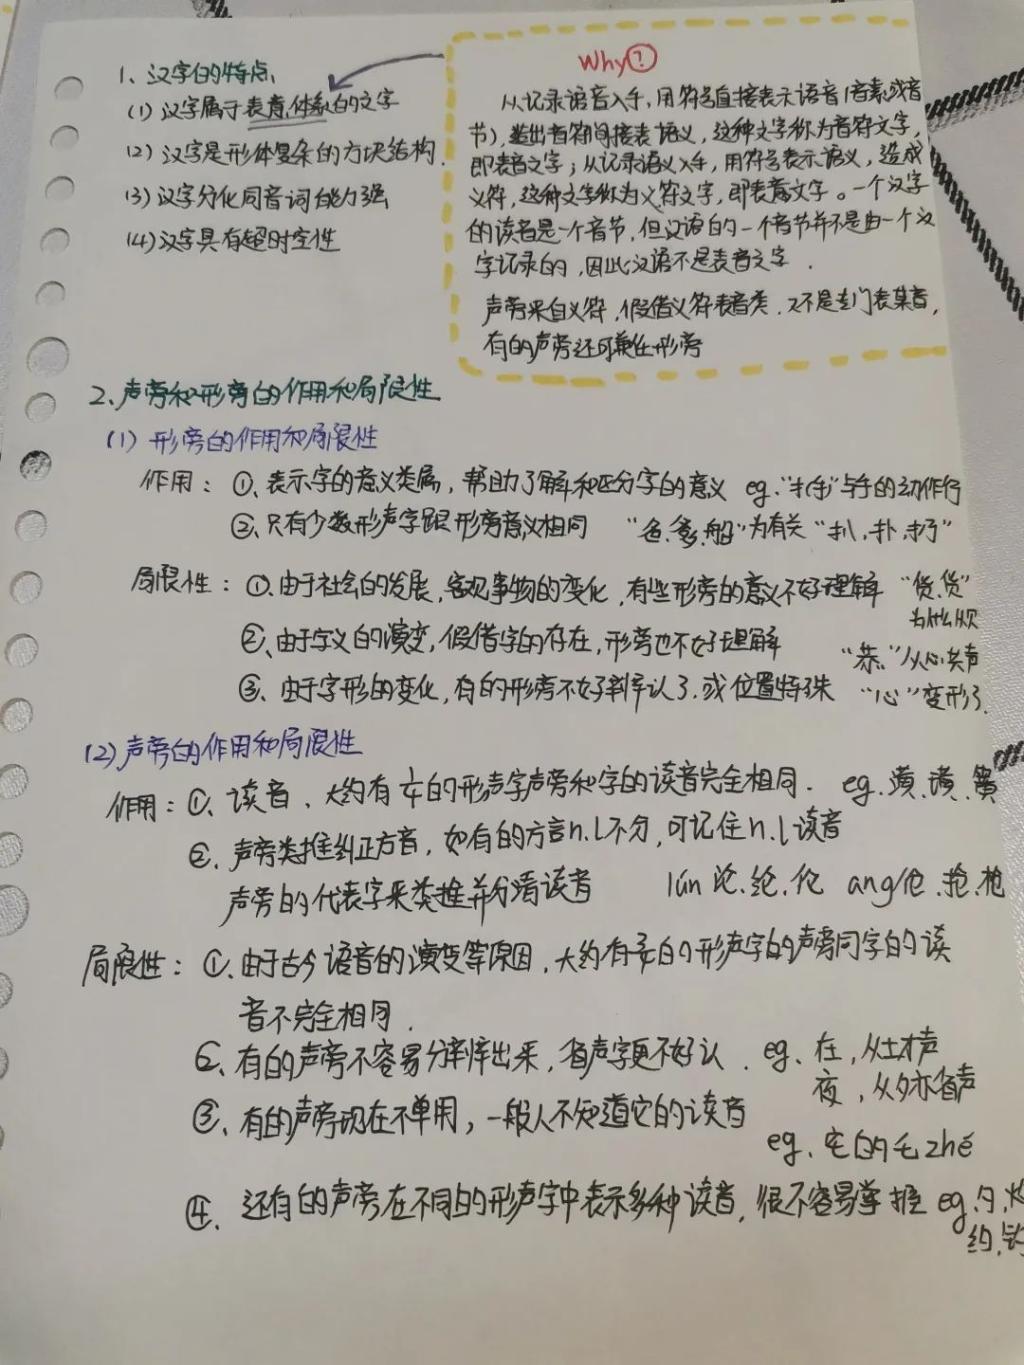 1、汉字的特点
(1) 汉字属于表意体系的文字
(2) 汉字是形体复杂的方块结构
(3) 汉字分化同音词能力强
(4) 汉字具有超时空性
Why?
从记录语音入手，用符号直接表示语音(音素或音
节)，造出音符间接表语义，这种文字称为音符文字，
即表音文字；从记录语义入手，用符号表示语义，造成
义符，这种文字称为义符文字，即表意文字。一个汉字
的读音是一个音节，但汉语的一个音节并不是由一个汉
字记录的，因此汉语不是表音文字．
声旁来自义符，假借义符表音类，又不是专门表某音，
有的声旁还可兼任形旁
2、声旁和形旁的作用和局限性
(1) 形旁的作用和局限性
作用：①、表示字的意义类属，帮助了解和区分字的意义 eg."扌(手)"与手的动作行
②、只有少数形声字跟形旁意义相同 "爸、爹、船" 为有关"扒，扑，扔"
局限性：①、由于社会的发展，客观事物的变化，有些形旁的意义不好理解 "货、贷"
为什么从贝
②、由于字义的演变，假借字的存在，形旁也不好理解 "恭"从心共声
③、由于字形的变化，有的形旁不好辨认了，或位置特殊 "心"变形了．
(2) 声旁的作用和局限性
作用：①、读音、大约有的形声字声旁和字的读音完全相同． eg、潢、璜、簧
②、声旁类推纠正方音，如有的方言n.l不分，可记住n.l读音
声旁的代表字来类推并分清读音 lún 沦、纶、伦 ang 伧、抢、枪
局限性：①、由于古今语音的演变等原因，大约有的形声字的声旁同字的读
音不完全相同．
②、有的声旁不容易分辨出来，省声字更不好认． eg、在，从土才声
夜，从夕亦省声
③、有的声旁现在不单用，一般人不知道它的读音
eg、宅的乇zhé
④、还有的声旁在不同的形声字中表示多种读音，很不容易类推 eg、灼
约、钓